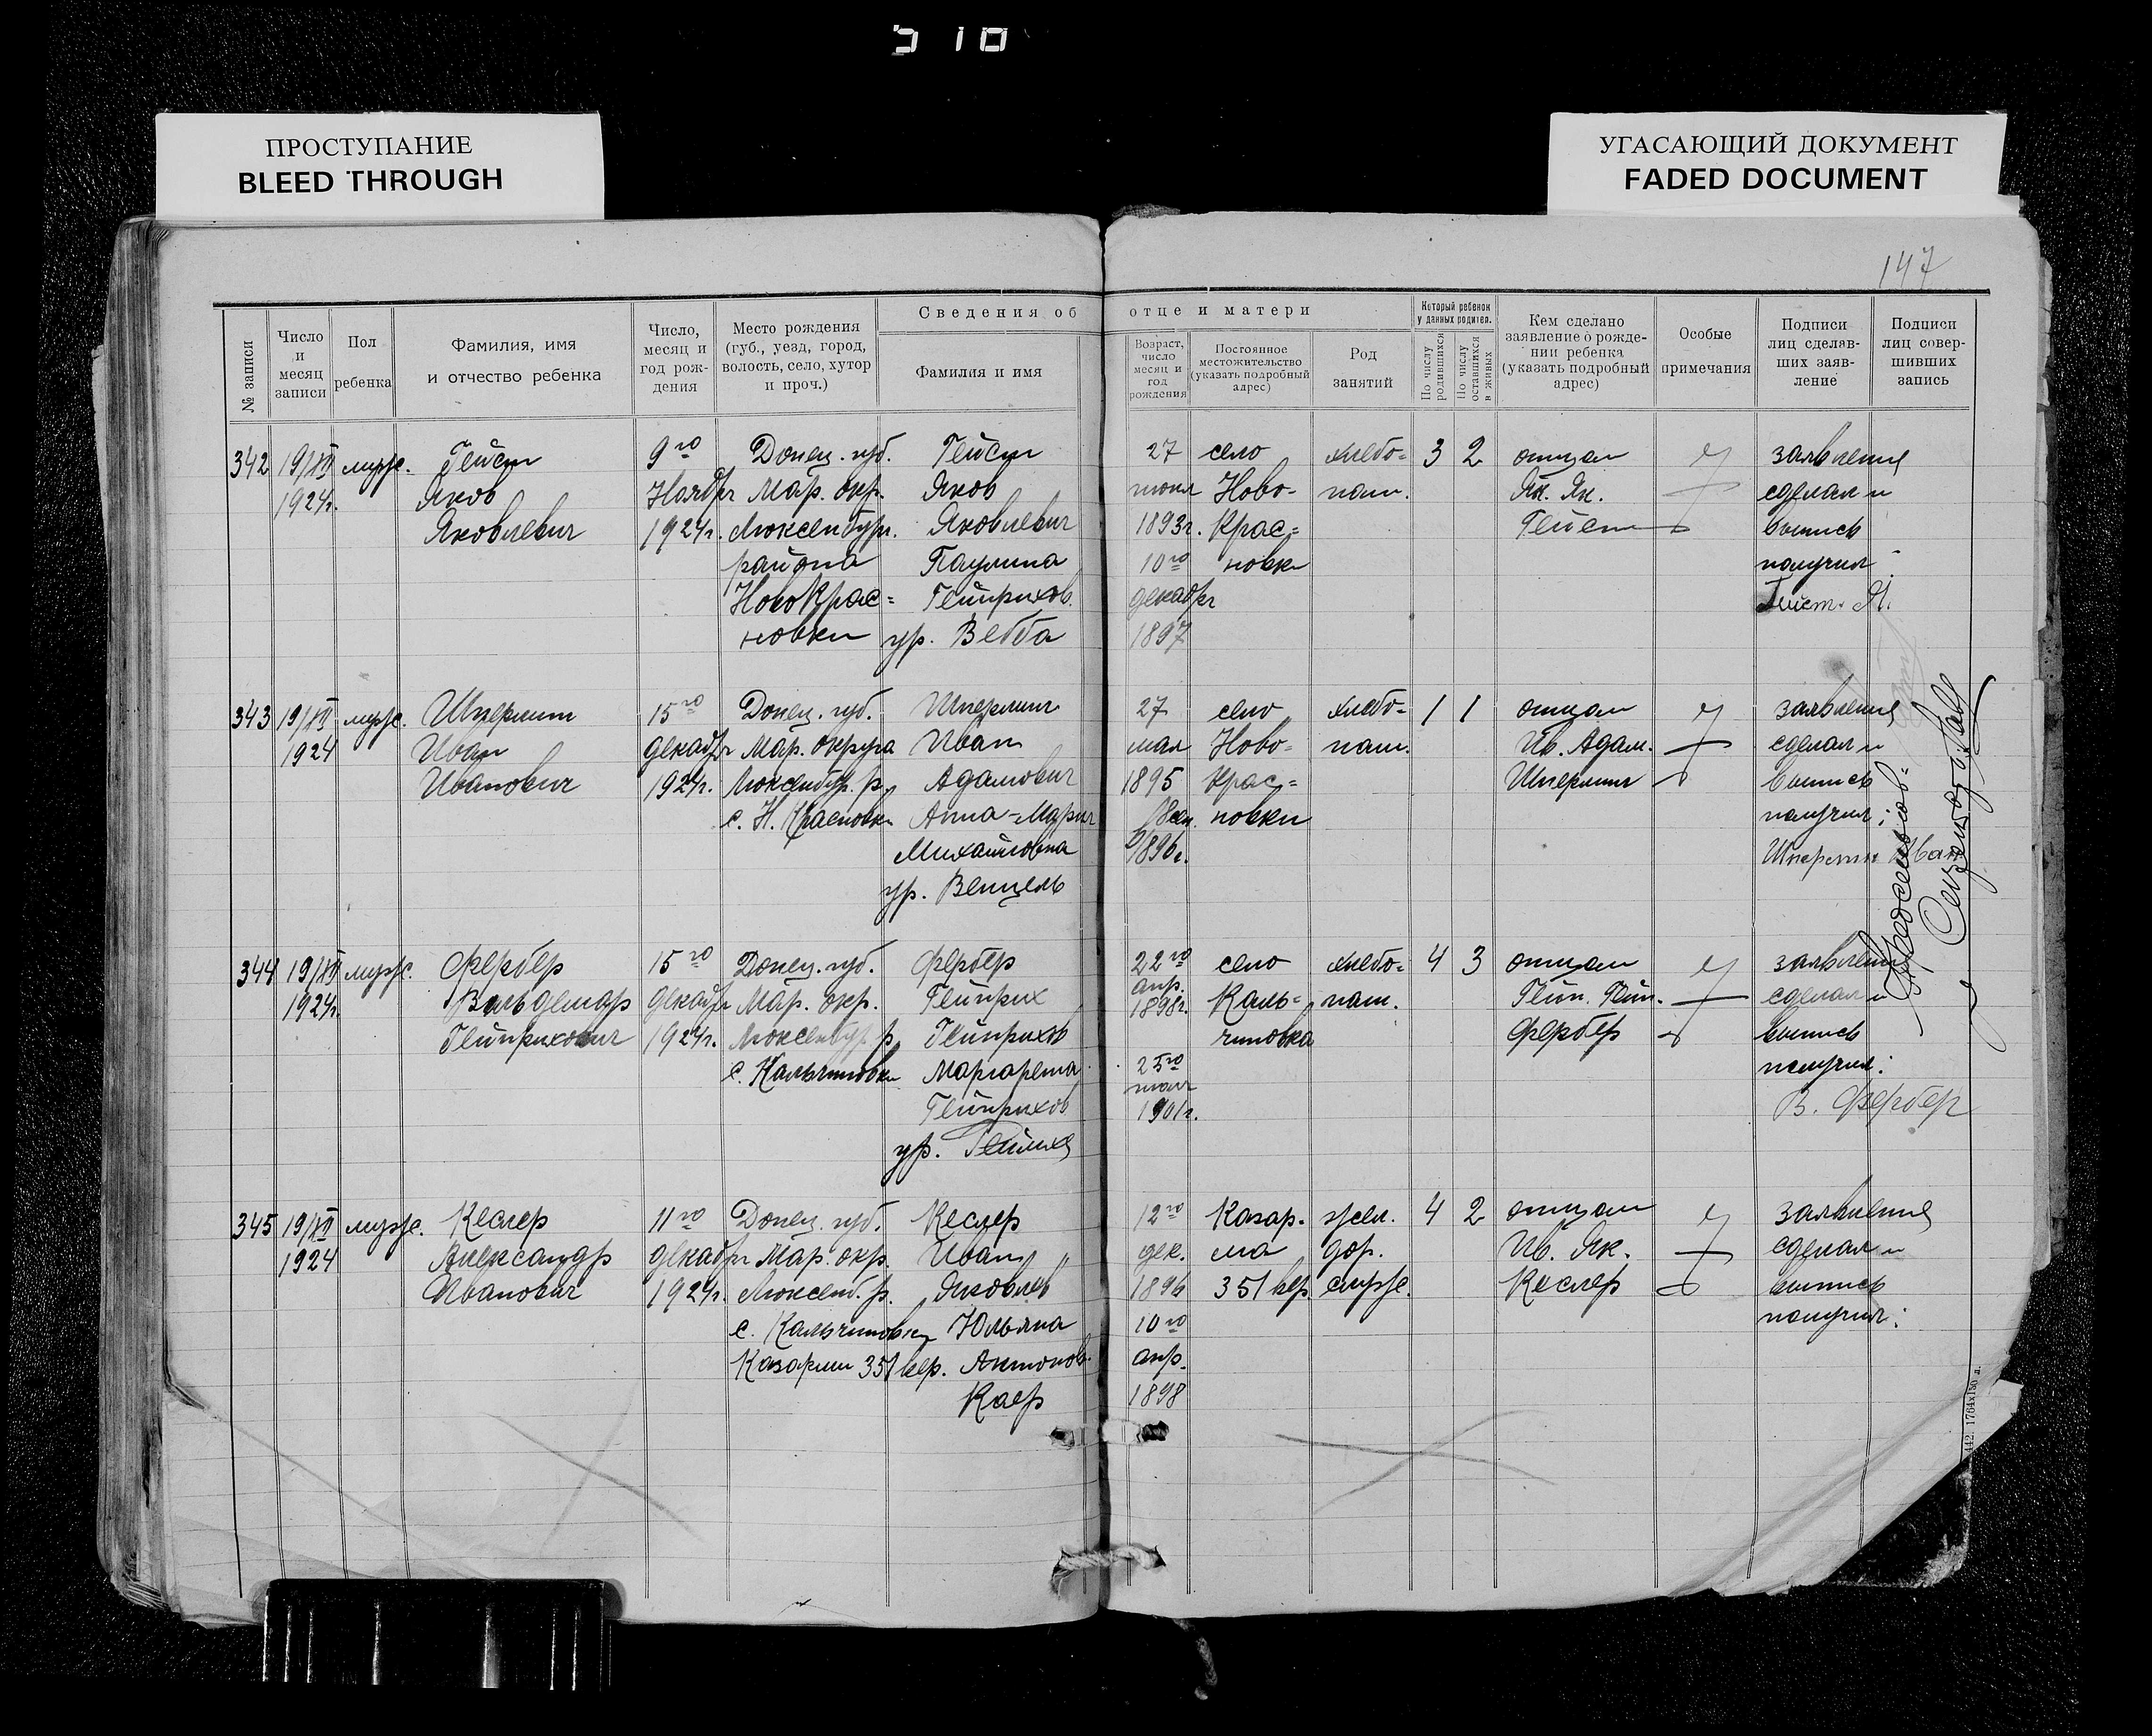 310
ПРОСТУПАНИЕ
BLEED THROUGH
УГАСАЮЩИЙ ДОКУМЕНТ
FADED DOCUMENT
147
Сведения об отце и матери
№ записи
Число и месяц записи
Пол ребенка
Фамилия, имя и отчество ребенка
Число, месяц и год рождения
Место рождения (губ., уезд, город, волость, село, хутор и проч.)
Фамилия и имя
Возраст, число месяц и год рождения
Постоянное местожительство (указать подробный адрес)
Род занятий
Который ребенок у данных родител.
По числу родившихся
По числу оставшихся в живых
Кем сделано заявление о рождении ребенка (указать подробный адрес)
Особые примечания
Подписи лиц сделавших заявление
Подписи лиц совершивших запись
342 19/XII муж. Гейст 9го Донец. губ. Гейст 27 село хлебо= 3 2 отцом заявление
1924г. Яков Ноября Мар. окр. Яков июня Ново- паш. Як. Як. сделал и
Яковлевич 1924г. Люксембург. Яковлевич 1893г. Крас= Гейст выпись
района Паулина 10го новка получил:
НовоКрас= Гейнрихов. декабря Гейст. Я.
новки ур. Вебба 1897
343 19/XII муж. Шперлинг 15го Донец. губ. Шперлинг 27 село хлебо- 1 1 отцом заявление
1924 Иван декабря Мар. округа Иван мая Ново- паш. Ив. Адам. сделал и
Иванович 1924г. Люксембур. р. Адамович 1895 Крас= Шперлинг выпись
с. Н. Красновки Анна-Мария 18 новки получил:
Михайловна 1896г. Шперлинг Иван
ур. Венцель
344 19/XII муж. Фербер 15го Донец. губ. Фербер 22го село хлебо= 4 3 отцом заявление
1924г. Вальдемар декабря Мар. окр. Гейнрих апр. 1898г. Каль= паш. Гейн. Гейн. сделал и
Гейнрихович 1924г. Люксембур. р. Гейнрихов чиновка Фербер выпись
с. Кальчиновки Маргарета 25го получил:
Гейнрихов 1901г. В. Фербер
ур.
345 19/XII муж. Кеслер 11го Донец. губ. Кеслер 12го Казар- жел. 4 2 отцом заявление
1924 Александр декабря Мар. окр. Иван дек. ма дор. Ив. Як. сделал и
Иванович 1924г. Люксемб. р. Яковлев 1896 351 вер. служ. Кеслер выпись
с. Кальчиновки Юльяна 10го получил:
Казарми 351 вер. Антонов. апр.
Каер 1898
442. 1764х150 л.